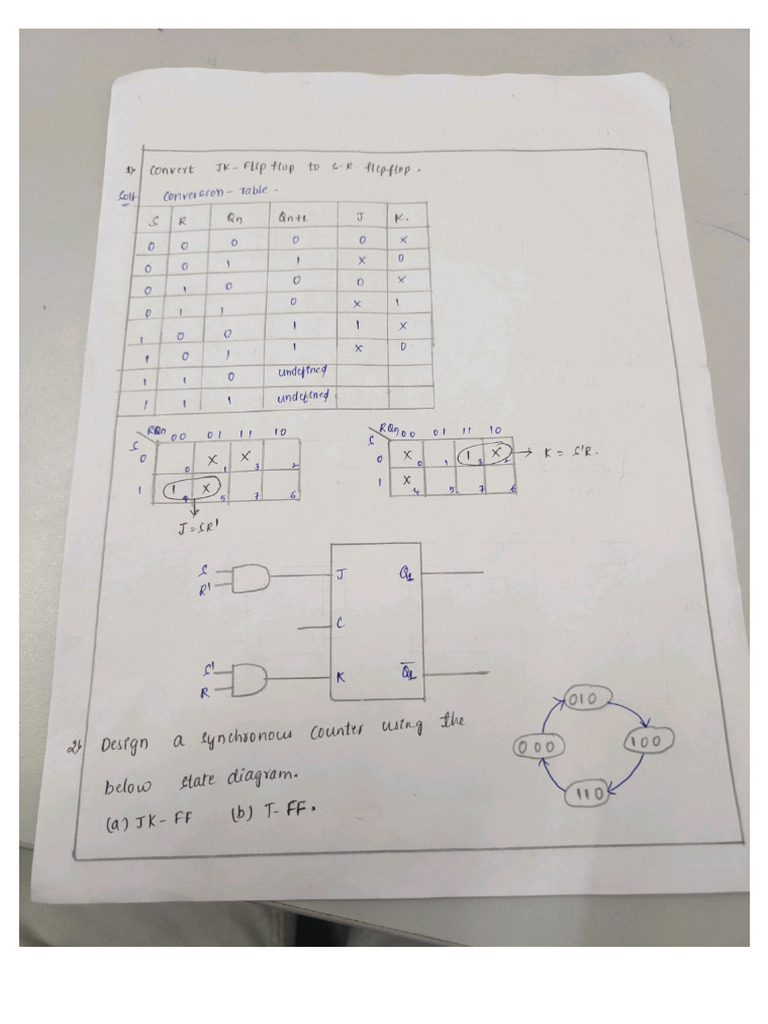 1) Convert JK-Flip flop to S-R flipflop.
Sol) Conversion-Table.
S R Qn Qn+1 J K.
0 0 0 0 0 X
0 0 1 1 X 0
0 1 0 0 0 X
0 1 1 0 X 1
1 0 0 1 1 X
1 0 1 1 X 0
1 1 0 undefined
1 1 1 undefined
S RQn 00 01 11 10
0 0 X 1 X 3 2
1 1 4 X 5 7 6
J = SR'
S RQn 00 01 11 10
0 X 0 1 1 3 X 2 K = S'R.
1 X 4 5 7 6
S
R'
J Q1
C
S'
R
K Q1
2) Design a synchronous counter using the
below state diagram.
(a) JK-FF (b) T-FF.
010
000 100
110